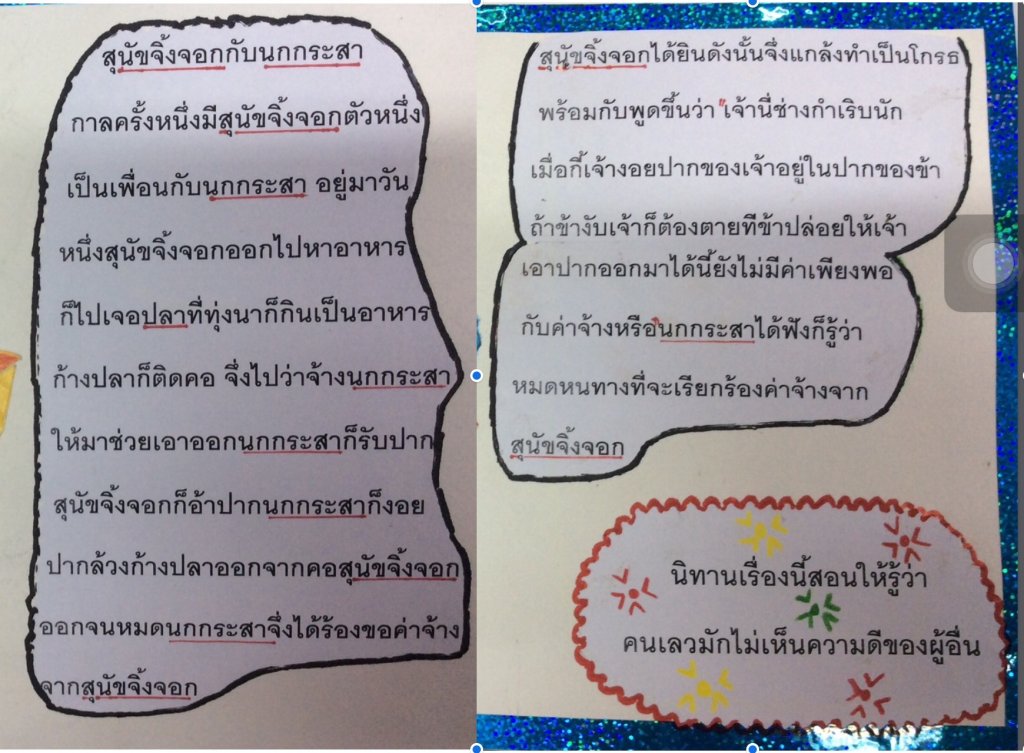 สุนัขจิ้งจอกกับนกกระสา
กาลครั้งหนึ่งมีสุนัขจิ้งจอกตัวหนึ่ง
เป็นเพื่อนกับนกกระสา อยู่มาวัน
หนึ่งสุนัขจิ้งจอกออกไปหาอาหาร
ก็ไปเจอปลาที่ทุ่งนาก็กินเป็นอาหาร
ก้างปลาก็ติดคอ จึ่งไปว่าจ้างนกกระสา
ให้มาช่วยเอาออกนกกระสาก็รับปาก
สุนัขจิ้งจอกก็อ้าปากนกกระสาก็งอย
ปากล้วงก้างปลาออกจากคอสุนัขจิ้งจอก
ออกจนหมดนกกระสาจึ่งได้ร้องขอค่าจ้าง
จากสุนัขจิ้งจอก
สุนัขจิ้งจอกได้ยินดังนั้นจึ่งแกล้งทำเป็นโกรธ
พร้อมกับพูดขึ้นว่า "เจ้านี่ช่างกำเริบนัก
เมื่อกี้เจ้างอยปากของเจ้าอยู่ในปากของข้า
ถ้าข้างับเจ้าก็ต้องตายทีข้าปล่อยให้เจ้า
เอาปากออกมาได้นี้ยังไม่มีค่าเพียงพอ
กับค่าจ้างหรือ"นกกระสาได้ฟังก็รู้ว่า
หมดหนทางที่จะเรียกร้องค่าจ้างจาก
สุนัขจิ้งจอก
นิทานเรื่องนี้สอนให้รู้ว่า
คนเลวมักไม่เห็นความดีของผู้อื่น